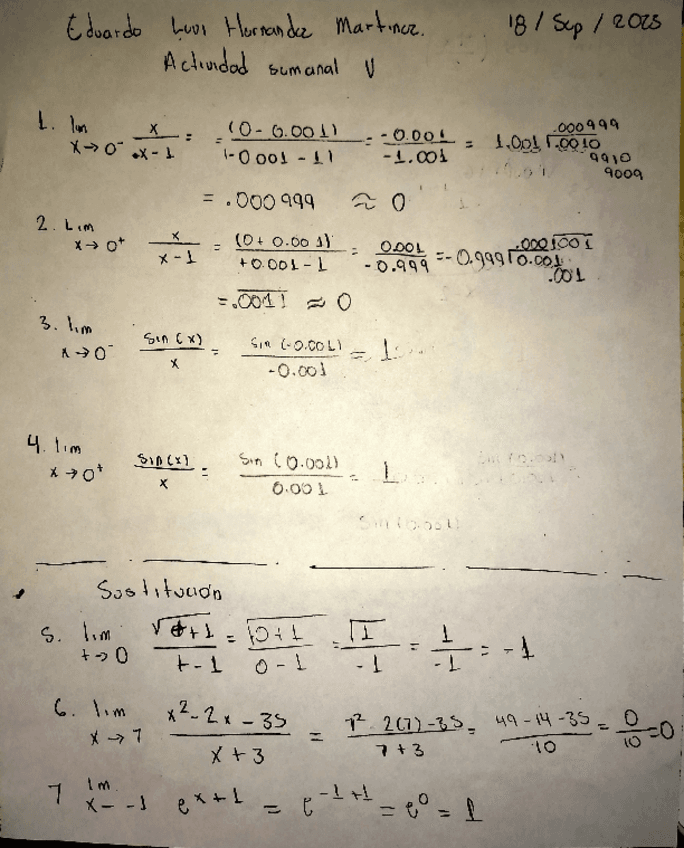 Eduardo Levi Hernandez Martinez. 18 / Sep / 2025
Actividad semanal V
1. lim x→0⁻ x / x-1 = = (0-0.001) / (-0.001-1) = -0.001 / -1.001 = 1.001 ⟌ .0010 .000999
9910
9009
= .000999 ≈ 0
2. Lim x→0⁺ x / x-1 = (0+0.001) / +0.001-1 = 0.001 / -0.999 = -0.999 ⟌ 0.001 .0001001
.001
= .0011 ≈ 0
3. lim x→0⁻ Sin(x) / x = Sin(-0.001) / -0.001 = 1
4. lim x→0⁺ Sin(x) / x = Sin(0.001) / 0.001 = 1
Sin(0.001)
Sustitución
5. lim t→0 √t+1 / t-1 = √0+1 / 0-1 = √1 / -1 = 1 / -1 = -1
6. lim x→7 x²-2x-35 / x+3 = 7² 2(7)-35 / 7+3 = 49-14-35 / 10 = 0 / 10 = 0
7 lim x--1 e^x+1 = e^-1+1 = e^0 = 1